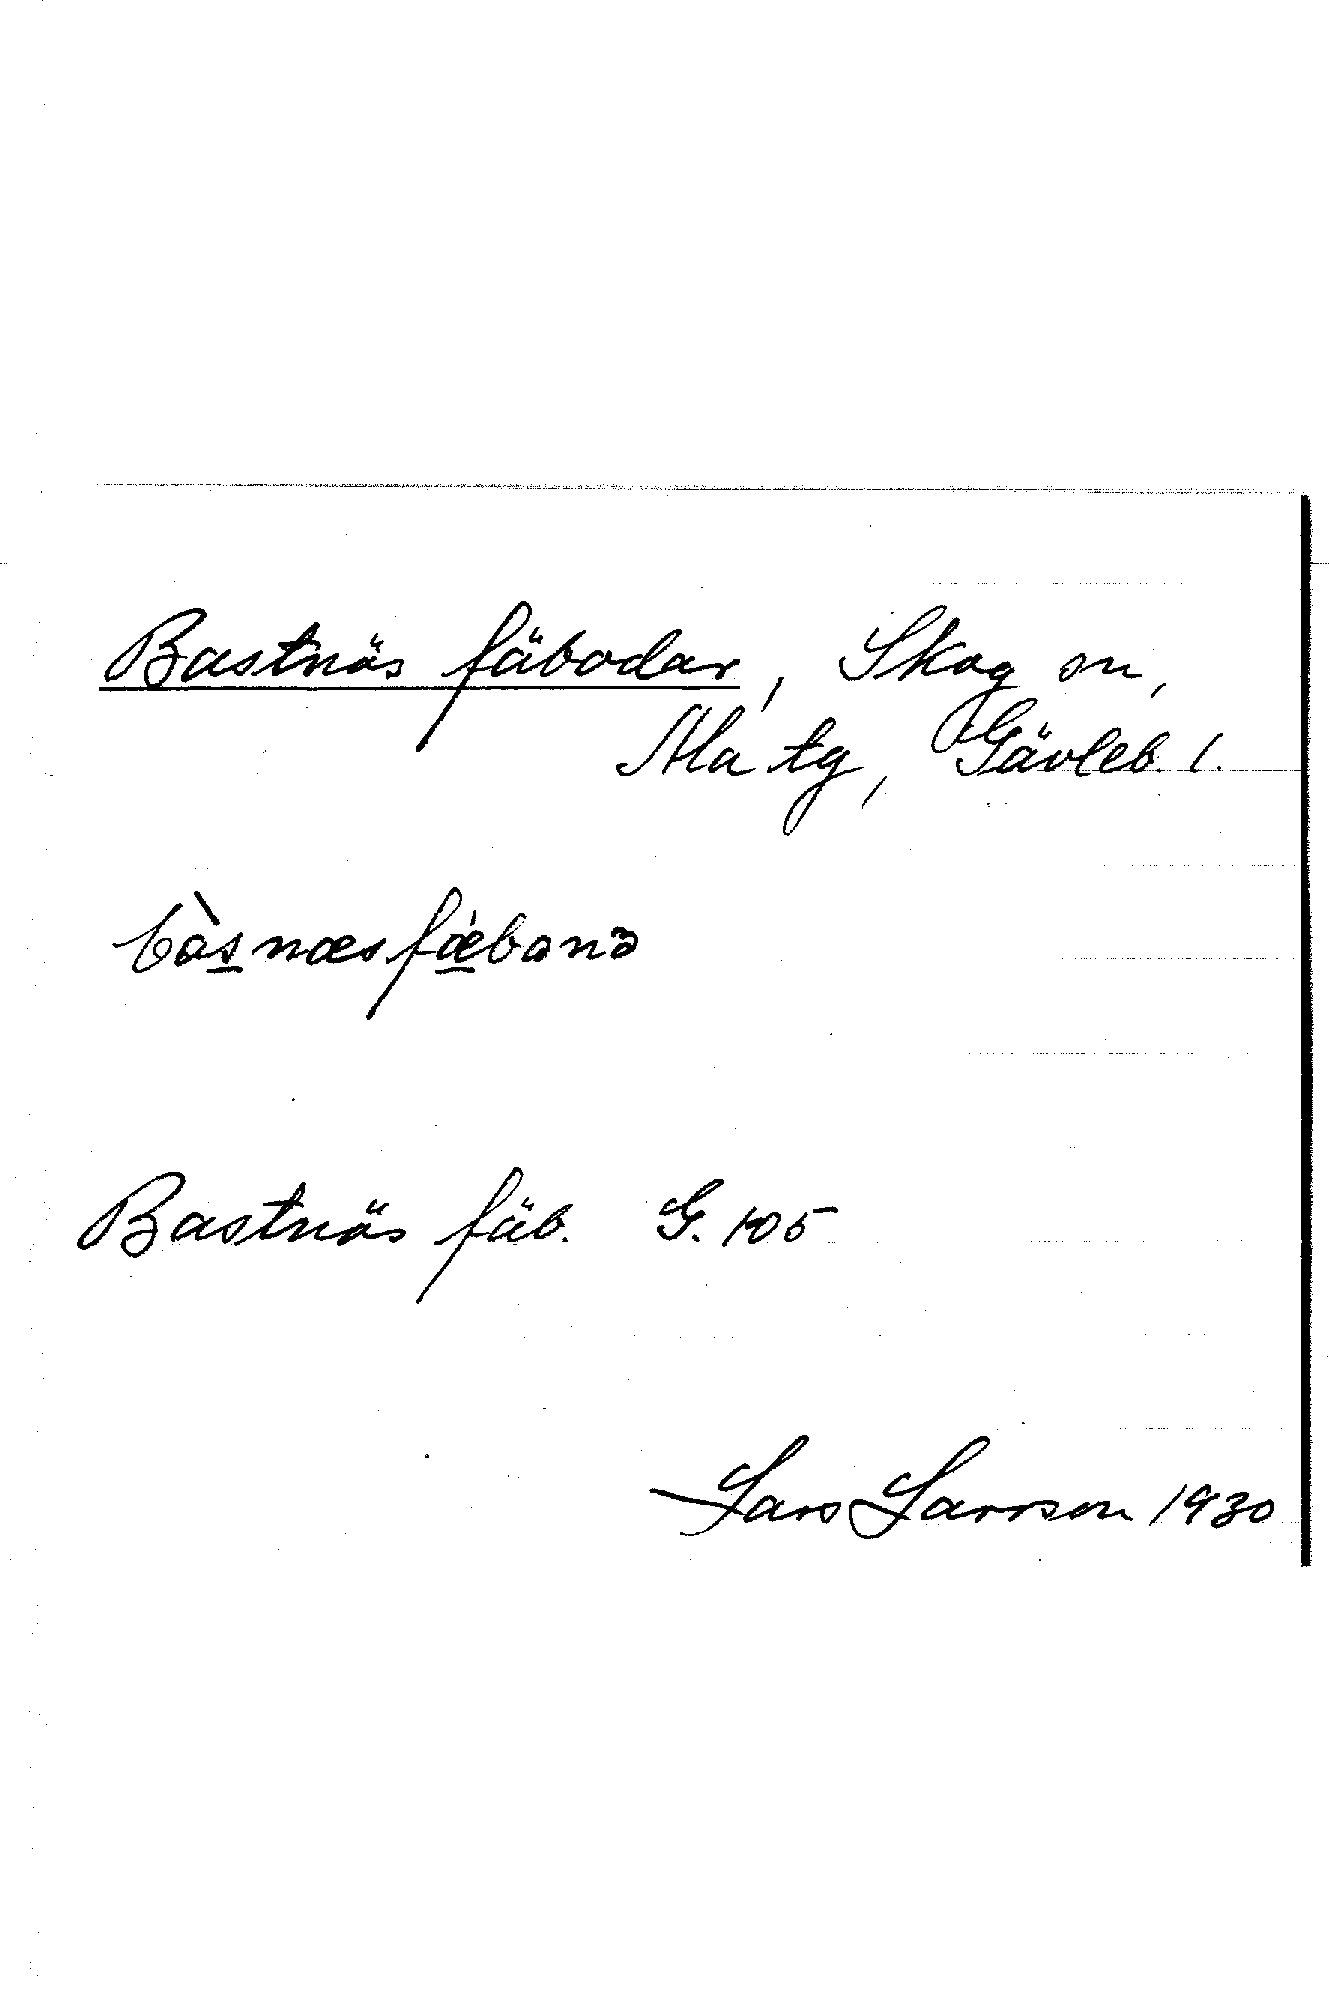 Bastnäs fäbodar, Skog sn,
Ala tg, Gävleb. l.
bàs̲næsfæ̲̀bənə
Bastnäs fäb. G. 105
Lars Larsson 1930